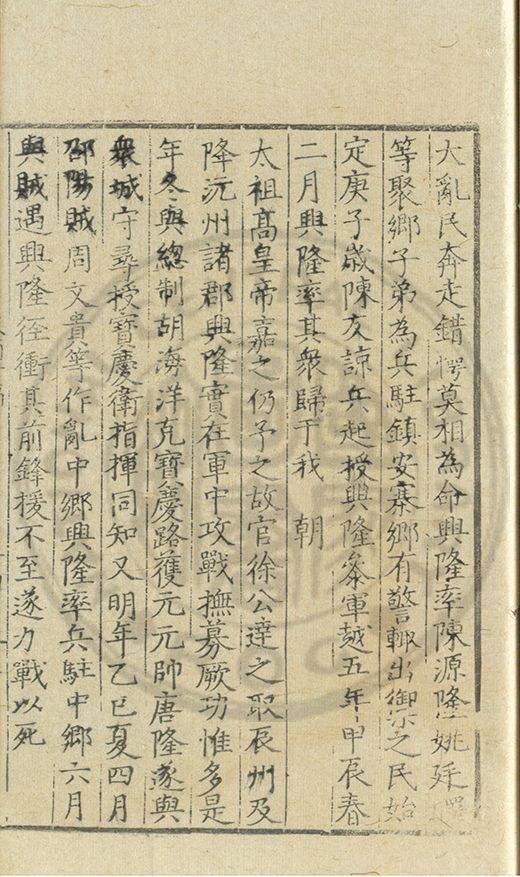 大亂民奔走錯愕莫相為命興隆率陳源隆姚廷
等聚鄉子弟為兵駐鎮安寨鄉有警輙出禦之民始
定庚子歲陳友諒兵起授興隆叅軍越五年甲辰春
二月興隆率其衆歸于我　朝
太祖高皇帝嘉之仍予之故官徐公達之取辰州及
降沅州諸郡興隆實在軍中攻戰撫募厥功惟多是
年冬與總制胡海洋克寶慶路獲元元帥唐隆遂與
衆城守尋授寶慶衛指揮同知又明年乙巳夏四月
邵陽賊周文貴等作亂中鄉興隆率兵駐中鄉六月
與賊遇興隆徑衝其前鋒援不至遂力戰以死